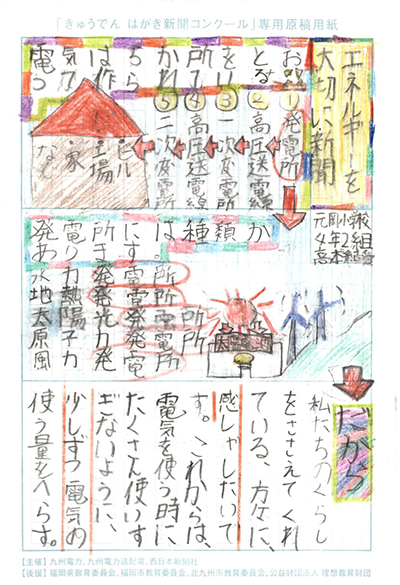 「きゅうでん はがき新聞コンクール」専用原稿用紙
エネルギーを
大切に新聞
①発電所
②高圧送電線
③一次変電所
④高圧送電線
⑤二次変電所
ビル
・工場
・家
など
元岡小学校
4年2組
風力発電所
原子力発電所
太陽光発電所
地熱発電所
水力発電所
あります。
だから
私たちのくらし
をささえてくれ
ている、方々に、
感しゃしたいで
す。これからは、
電気を使う時に
たくさん使いす
ぎないように、
少しずつ電気の
使う量をへらす。
【主催】九州電力、九州電力送配電、西日本新聞社
【後援】福岡県教育委員会、福岡市教育委員会、北九州市教育委員会、公益財団法人 理想教育財団